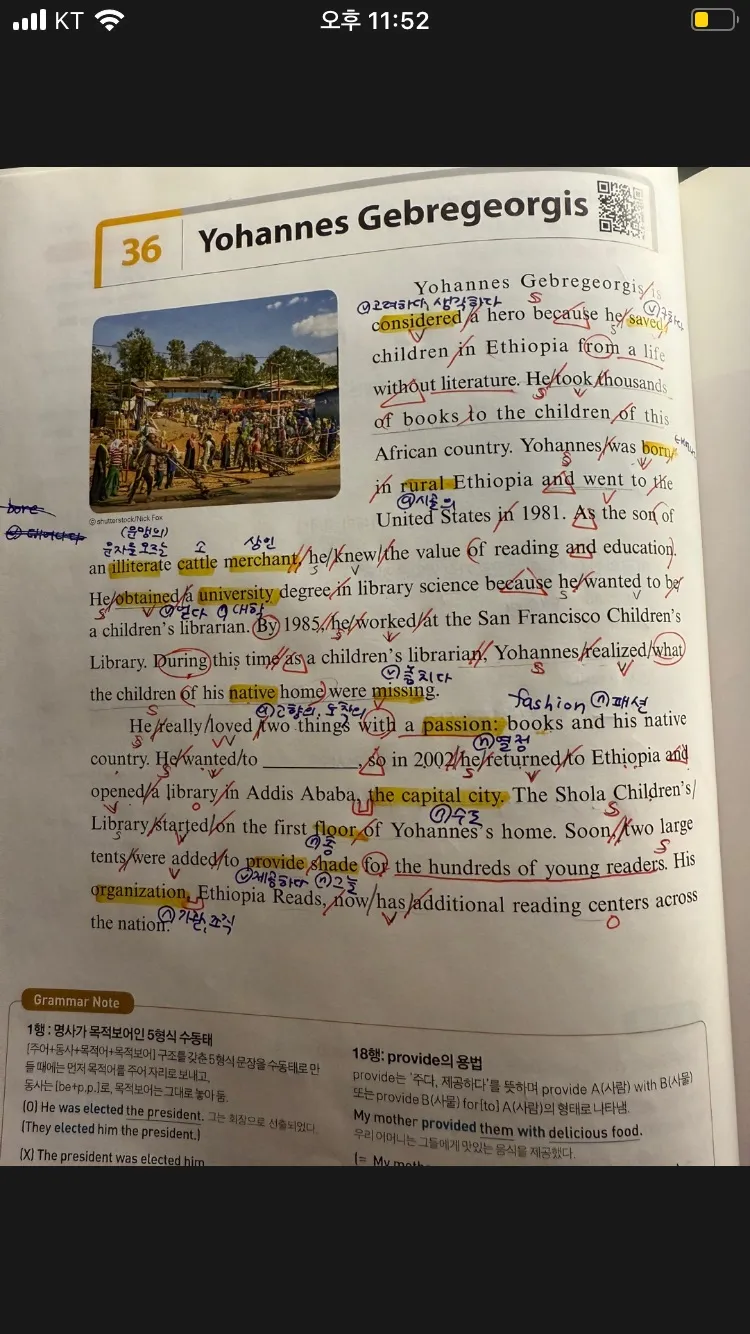 KT 오후 11:52
36 Yohannes Gebregeorgis
Yohannes Gebregeorgis is
ⓥ고려하다, 생각하다
considered a hero because he saved
children in Ethiopia from a life
without literature. He took thousands
of books to the children of this
African country. Yohannes was born
in rural Ethiopia and went to the
ⓐ시골의
United States in 1981. As the son of
© shutterstock/Nick Fox
bore
태어나다
(문맹의)
문자를 모르는 소 상인
an illiterate cattle merchant, he knew the value of reading and education.
He obtained a university degree in library science because he wanted to be
ⓥ얻다 ⓝ대학
a children's librarian. By 1985, he worked at the San Francisco Children's
Library. During this time as a children's librarian, Yohannes realized what
ⓥ놓치다
the children of his native home were missing.
ⓐ고향의, 토착의
fashion ⓝ패션
He really loved two things with a passion: books and his native
ⓝ열정
country. He wanted to ____________, so in 2002 he returned to Ethiopia and
opened a library in Addis Ababa, the capital city. The Shola Children's
ⓝ수도
Library started on the first floor of Yohannes's home. Soon, two large
ⓝ층
tents were added to provide shade for the hundreds of young readers. His
ⓥ제공하다 ⓝ그늘
organization, Ethiopia Reads, now has additional reading centers across
ⓝ기관, 조직
the nation.
Grammar Note
1행 : 명사가 목적보어인 5형식 수동태
[주어+동사+목적어+목적보어] 구조를 갖춘 5형식 문장을 수동태로 만
들 때에는 먼저 목적어를 주어 자리로 보내고,
동사는 [be+p.p.]로, 목적보어는 그대로 놓아 둠.
(O) He was elected the president. 그는 회장으로 선출되었다.
(They elected him the president.)
(X) The president was elected him
18행: provide의 용법
provide는 '주다, 제공하다'를 뜻하며 provide A(사람) with B(사물)
또는 provide B(사물) for[to] A(사람)의 형태로 나타냄.
My mother provided them with delicious food.
우리 어머니는 그들에게 맛있는 음식을 제공했다.
(= My